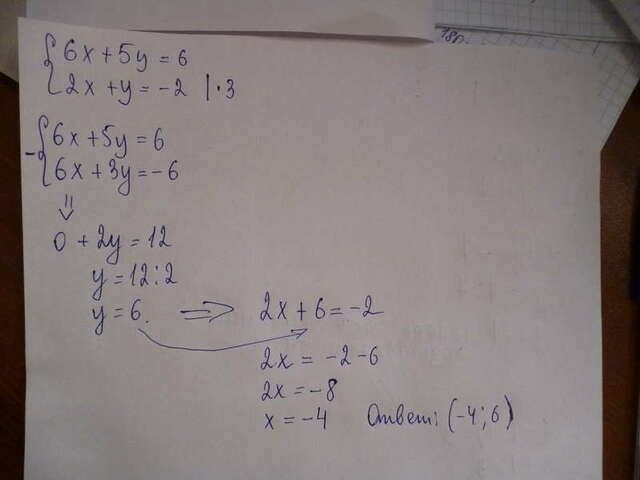 18р.
{6x + 5y = 6
{2x + y = -2 |·3
-{6x + 5y = 6
{6x + 3y = -6
⇓
0 + 2y = 12
y = 12:2
y = 6. ⇒ 2x + 6 = -2
2x = -2 - 6
2x = -8
x = -4 Ответ: (-4; 6)